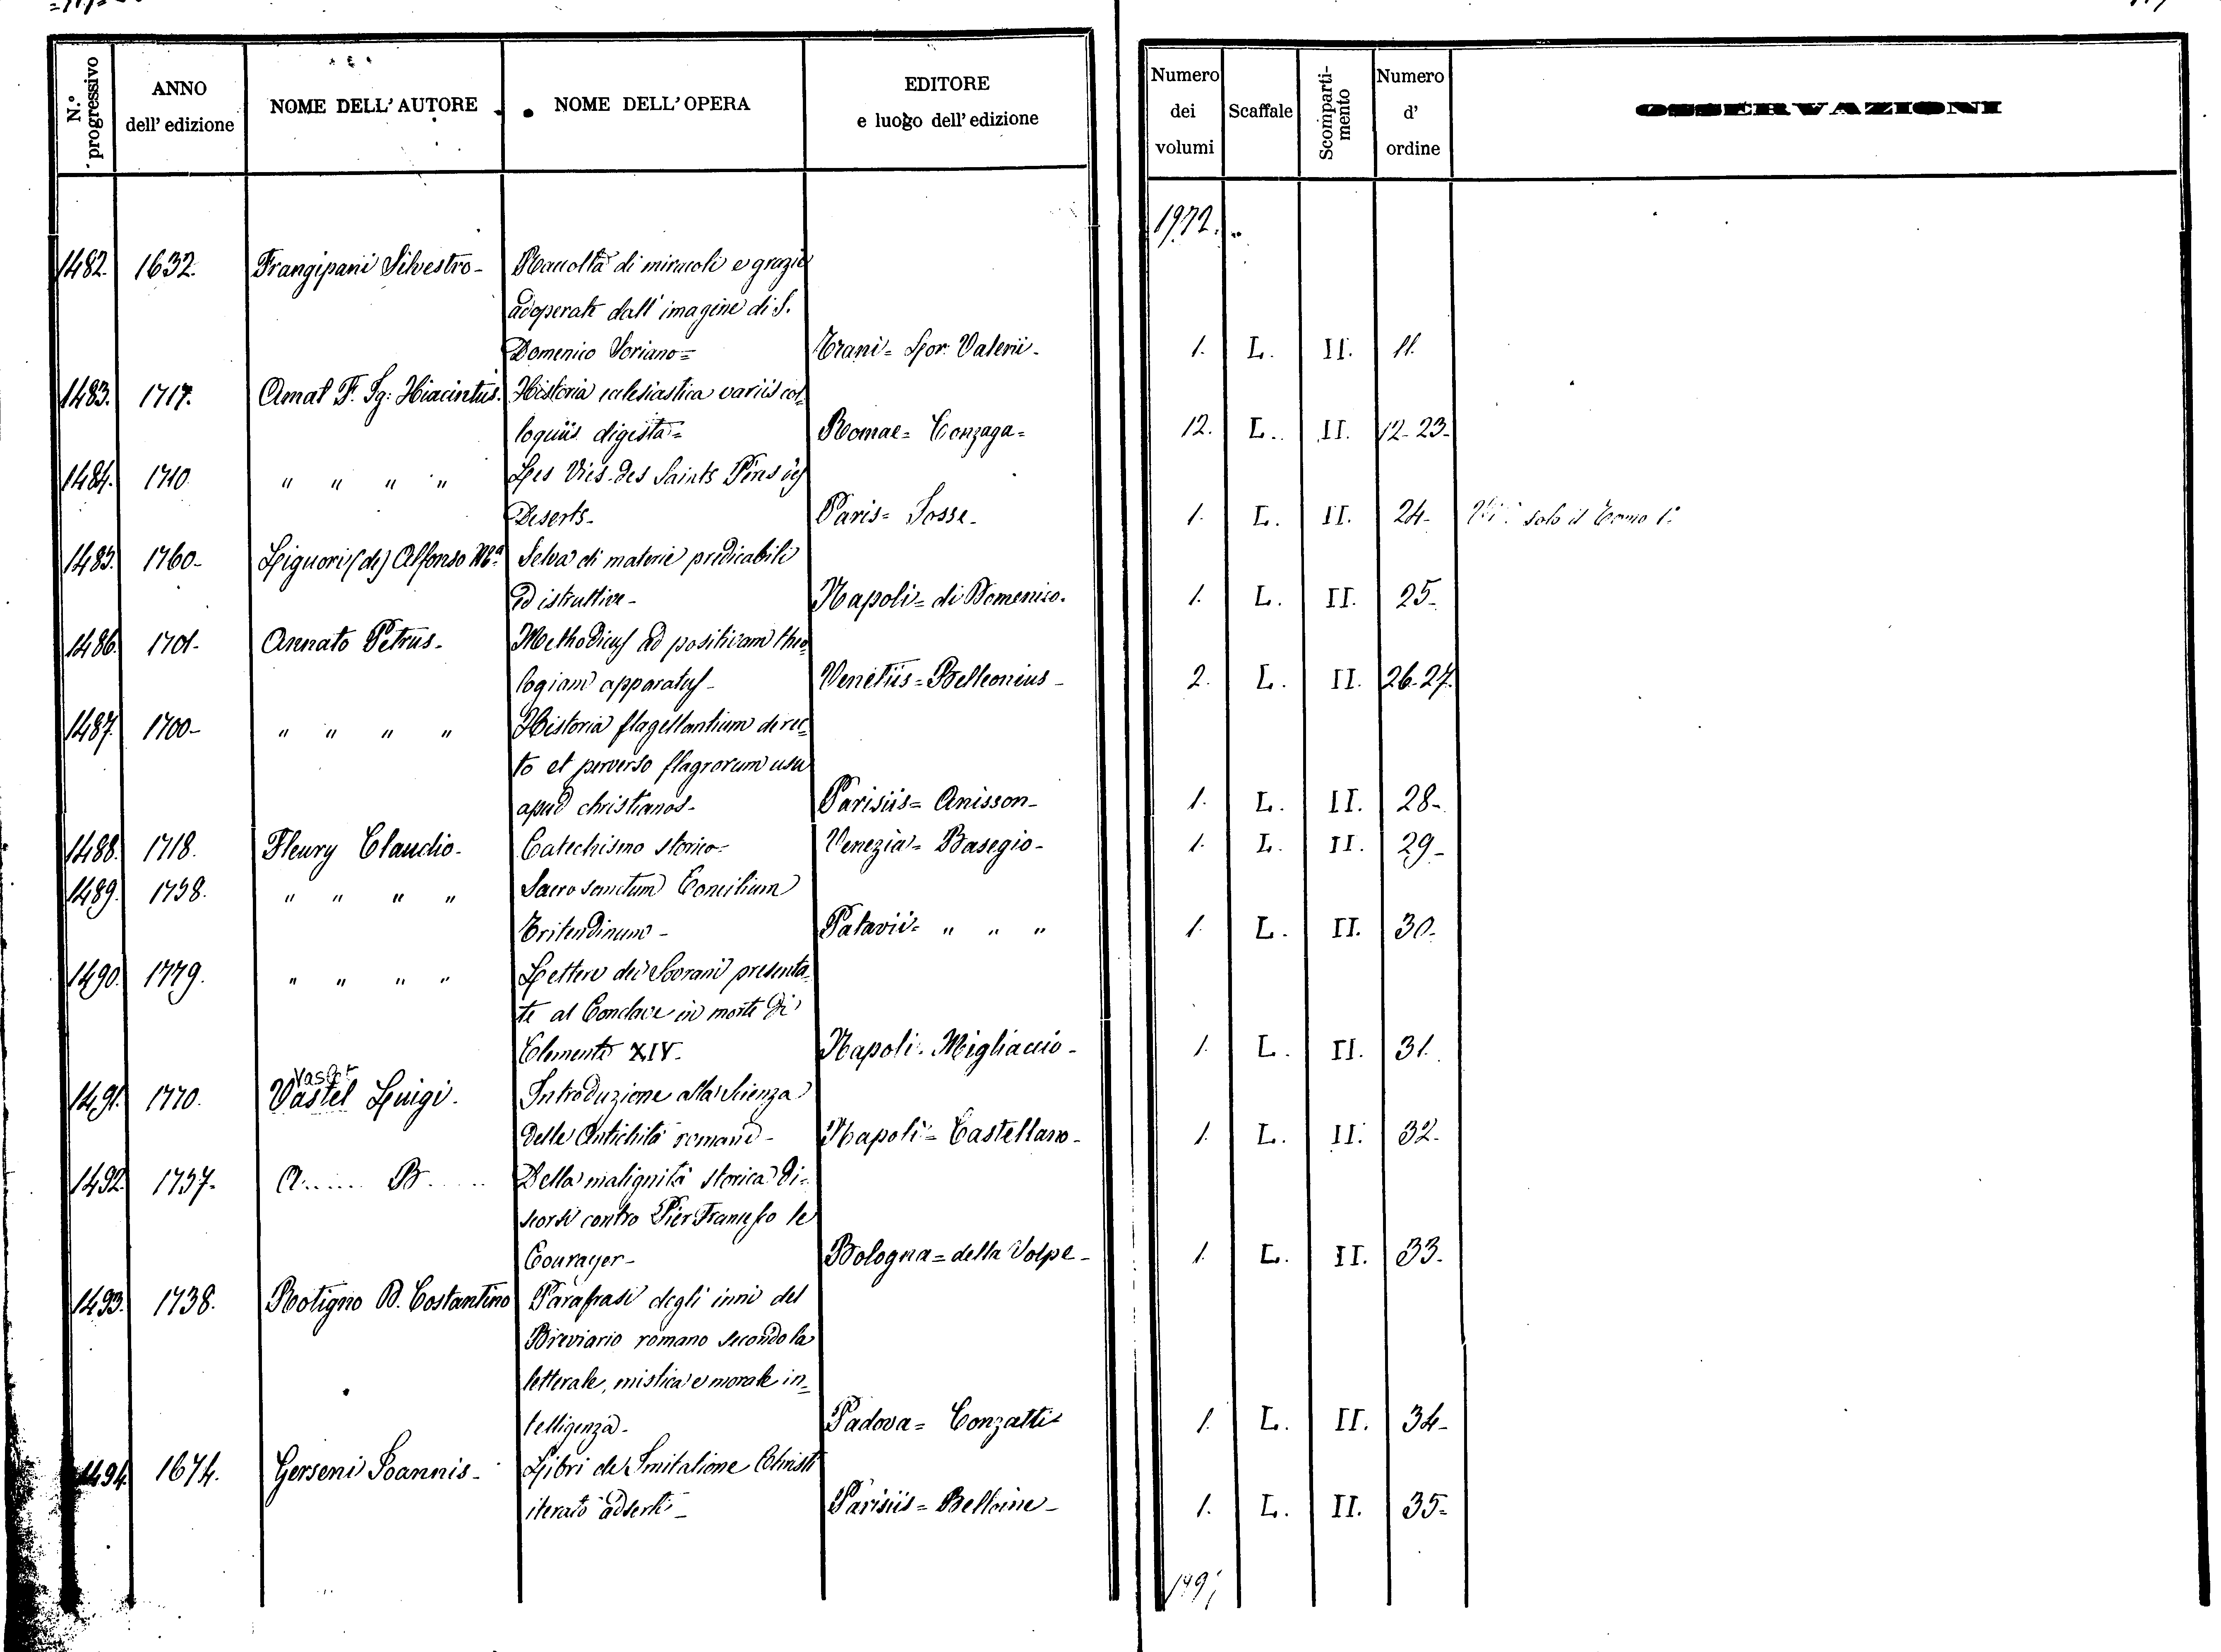 N.º progressivo
ANNO dell' edizione
NOME DELL' AUTORE
NOME DELL' OPERA
EDITORE e luogo dell' edizione
Numero dei volumi
Scaffale
Scomparti-mento
Numero d' ordine
OSSERVAZIONI
1972.
1482. 1632. Frangipani Silvestro - Raccolta di miracoli e grazie
adoperate dall' imagine di S.
Domenico Soriano = Trani = Lor. Valerii - 1. L. II. 11.
1483. 1717. Amat F. Ig: Hiacintus. Historia eclesiastica variis col=
loquiis digesta = Romae = Conzaga = 12. L. II. 12-23-
1484. 1710. " " " " Les Vies des Saints Pères des
Deserts - Paris = Josse - 1. L. II. 24- solo il Tomo 1º
1485. 1760- Liguori (de) Alfonso Mª Selva di materie predicabili
ed istruttive - Napoli = di Domenico. 1. L. II. 25-
1486. 1701- Annato Petrus - Methodicus ad positivam theo=
logiam apparatus - Venetiis = Belleonius - 2. L. II. 26-27.
1487. 1700- " " " " Historia flagellantium de rec=
to et perverso flagrorum usu
apud christianos - Parisiis = Anisson - 1. L. II. 28-
1488. 1718. Fleury Claudio - Catechismo storico = Venezia = Basegio - 1. L. II. 29-
1489. 1738. " " " " Sacrosanctum Concilium
Tritendinum - Patavii = " " " 1. L. II. 30-
1490. 1779. " " " " Lettere dei Sovrani presenta=
te al Conclave in morte di
Clemente XIV - Napoli. Migliaccio - 1. L. II. 31.
Vaslet
1491. 1770. Vastel Luigi. Introduzione alla Scienza
delle Antichità romane - Napoli = Castellano - 1. L. II. 32-
1492. 1737. A...... B...... Della malignità storica di=
scorsi contro Pier Francesco le
Courayer - Bologna = della Volpe - 1. L. II. 33-
1493. 1738. Rotigno D. Costantino Parafrasi degli inni del
Breviario romano secondo la
letterale, mistica e morale in=
telligenza - Padova = Conzatti 1. L. II. 34-
1494. 1674. Gerseni Joannis - Libri de Imitatione Christi
iterato adserti - Parisiis = Belloine - 1. L. II. 35-